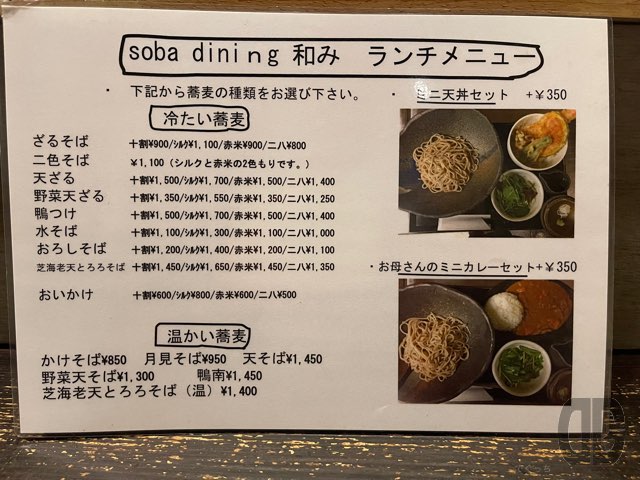 soba dining 和み　ランチメニュー
・　下記から蕎麦の種類をお選び下さい。
冷たい蕎麦
ざるそば　十割¥900/ｼﾙｸ¥1,100/赤米¥900/二八¥800
二色そば　¥1,100（シルクと赤米の2色もりです。）
天ざる　十割¥1,500/ｼﾙｸ¥1,700/赤米¥1,500/二八¥1,400
野菜天ざる　十割¥1,350/ｼﾙｸ¥1,550/赤米¥1,350/二八¥1,250
鴨つけ　十割¥1,500/ｼﾙｸ¥1,700/赤米¥1,500/二八¥1,400
水そば　十割¥1,100/ｼﾙｸ¥1,300/赤米¥1,100/二八¥1,000
おろしそば　十割¥1,200/ｼﾙｸ¥1,400/赤米¥1,200/二八¥1,100
芝海老天とろろそば　十割¥1,450/ｼﾙｸ¥1,650/赤米¥1,450/二八¥1,350
おいかけ　十割¥600/ｼﾙｸ¥800/赤米¥600/二八¥500
温かい蕎麦
かけそば¥850　月見そば¥950　天そば¥1,450
野菜天そば¥1,300　鴨南¥1,450
芝海老天とろろそば（温）¥1,400
・　ミニ天丼セット　+￥350
・お母さんのミニカレーセット+￥350